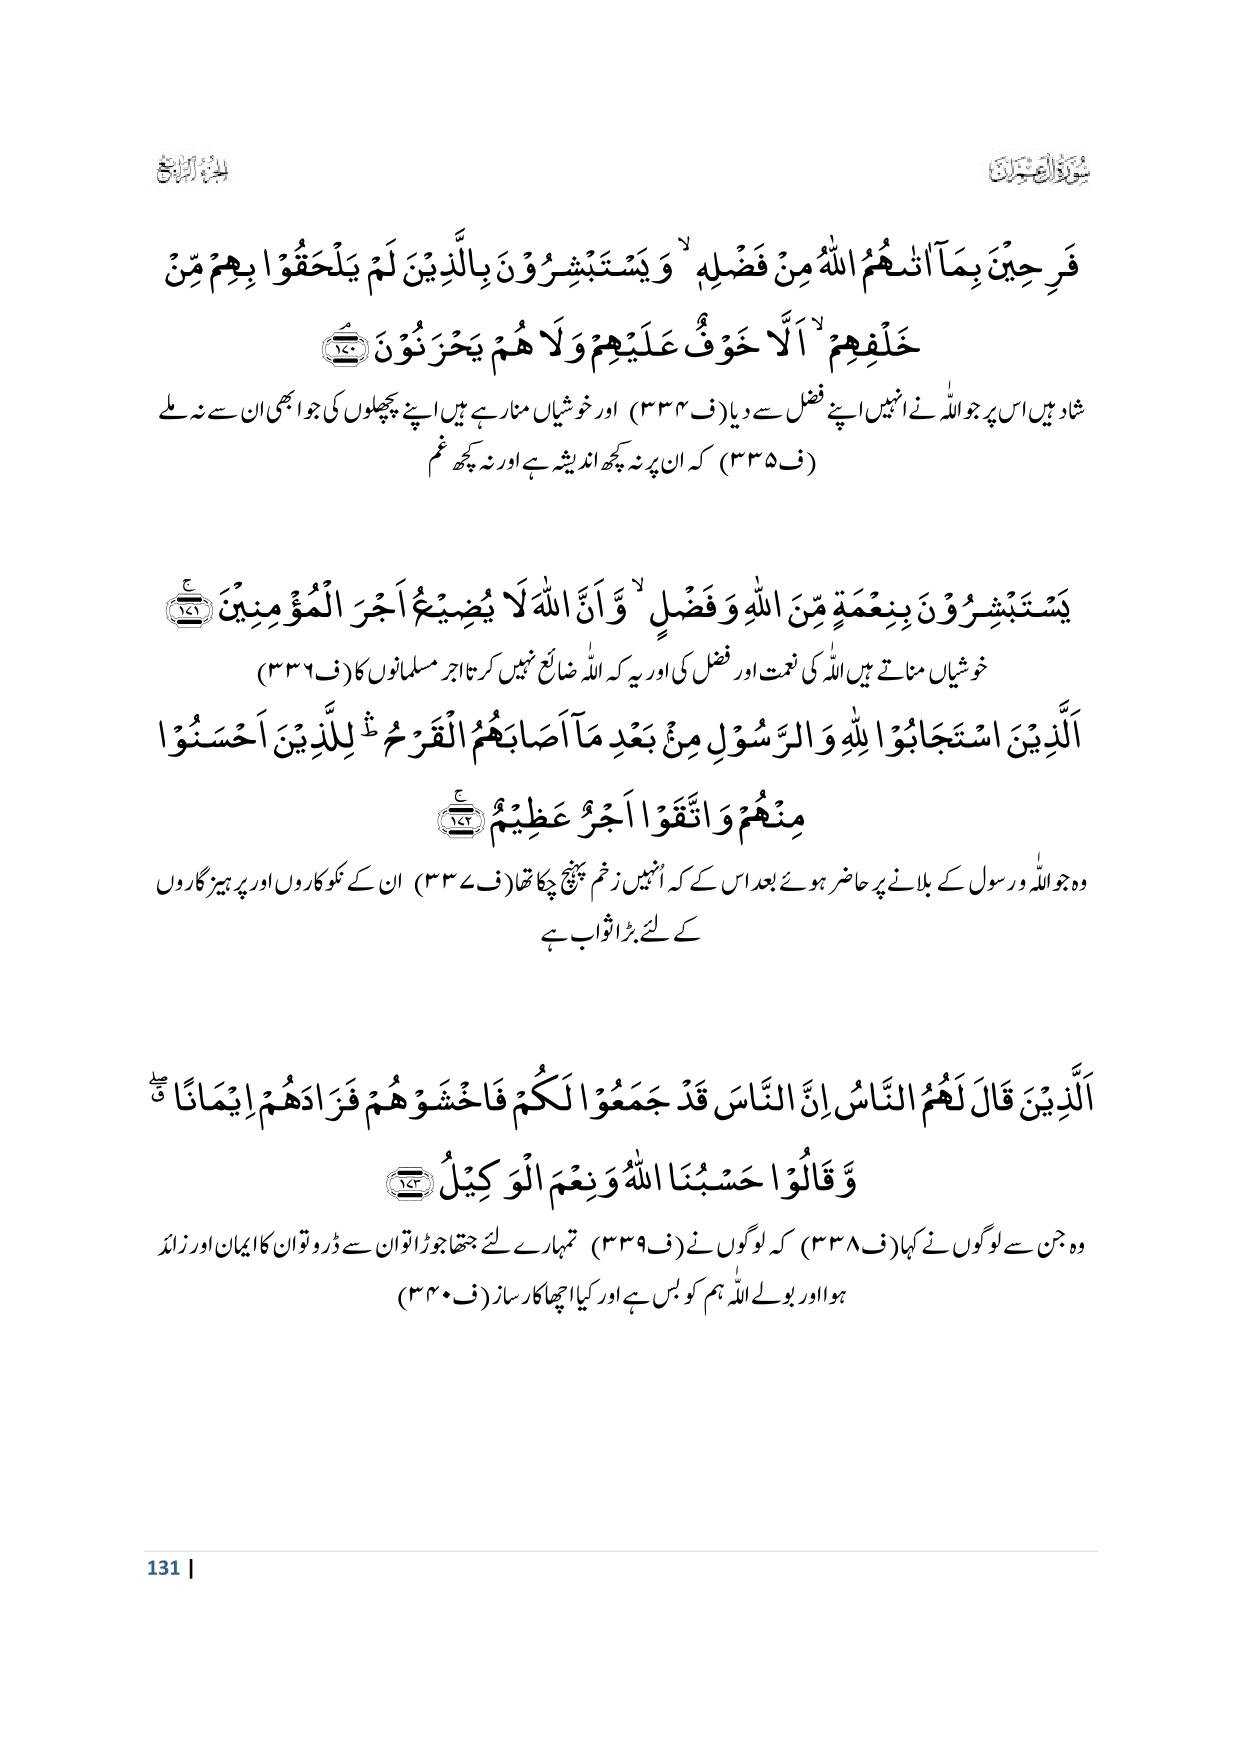 سُوْرَةُ اٰلِ عِمْرَان
الجزء الرابع
فَرِحِیْنَ بِمَاۤ اٰتٰىهُمُ اللّٰهُ مِنْ فَضْلِهٖ ۙ وَ یَسْتَبْشِرُوْنَ بِالَّذِیْنَ لَمْ یَلْحَقُوْا بِهِمْ مِّنْ
خَلْفِهِمْ ۙ اَلَّا خَوْفٌ عَلَیْهِمْ وَ لَا هُمْ یَحْزَنُوْنَ ﴿۱۷۰﴾ۘ
شاد ہیں اس پر جو اللّٰہ نے انہیں اپنے فضل سے دیا (ف۳۳۴) اور خوشیاں منارہے ہیں اپنے پچھلوں کی جو ابھی ان سے نہ ملے
(ف۳۳۵) کہ ان پر نہ کچھ اندیشہ ہے اور نہ کچھ غم
یَسْتَبْشِرُوْنَ بِنِعْمَةٍ مِّنَ اللّٰهِ وَ فَضْلٍ ۙ وَّ اَنَّ اللّٰهَ لَا یُضِیْعُ اَجْرَ الْمُؤْمِنِیْنَ ﴿۱۷۱﴾ۚۛ
خوشیاں مناتے ہیں اللّٰہ کی نعمت اور فضل کی اور یہ کہ اللّٰہ ضائع نہیں کرتا اجر مسلمانوں کا (ف۳۳۶)
اَلَّذِیْنَ اسْتَجَابُوْا لِلّٰهِ وَ الرَّسُوْلِ مِنْۢ بَعْدِ مَاۤ اَصَابَهُمُ الْقَرْحُ ؕۛ لِلَّذِیْنَ اَحْسَنُوْا
مِنْهُمْ وَ اتَّقَوْا اَجْرٌ عَظِیْمٌ ﴿۱۷۲﴾ۚ
وہ جو اللّٰہ و رسول کے بلانے پر حاضر ہوئے بعد اس کے کہ اُنہیں زخم پہنچ چکا تھا (ف۳۳۷) ان کے نکوکاروں اور پرہیزگاروں
کے لئے بڑا ثواب ہے
اَلَّذِیْنَ قَالَ لَهُمُ النَّاسُ اِنَّ النَّاسَ قَدْ جَمَعُوْا لَكُمْ فَاخْشَوْهُمْ فَزَادَهُمْ اِیْمَانًا ۖۗ
وَّ قَالُوْا حَسْبُنَا اللّٰهُ وَ نِعْمَ الْوَكِیْلُ ﴿۱۷۳﴾
وہ جن سے لوگوں نے کہا (ف۳۳۸) کہ لوگوں نے (ف۳۳۹) تمہارے لئے جتھا جوڑا تو ان سے ڈرو تو ان کا ایمان اور زائد
ہوا اور بولے اللّٰہ ہم کو بس ہے اور کیا اچھا کارساز (ف۳۴۰)
131 |